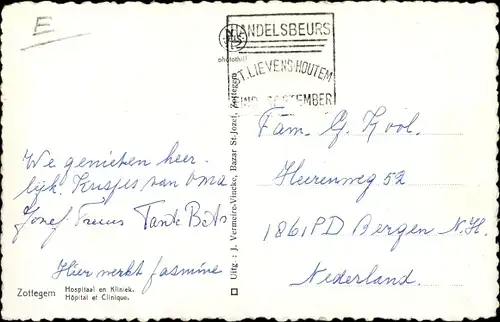 E
HANDELSBEURS
ST. LIEVENS HOUTEM
EIND SEPTEMBER
photothill
We genieten heer-
lijk. Kusjes van Oma
Jozef Truus Tante Bets
Hier werkt Jasmine
Fam. G. Kool.
Heerenweg 52
1861PD Bergen N.H.
Nederland.
Uitg.: J. Vermeire-Vincke, Bazar St-Jozef, Zottegem
Zottegem Hospitaal en Kliniek.
Hôpital et Clinique.